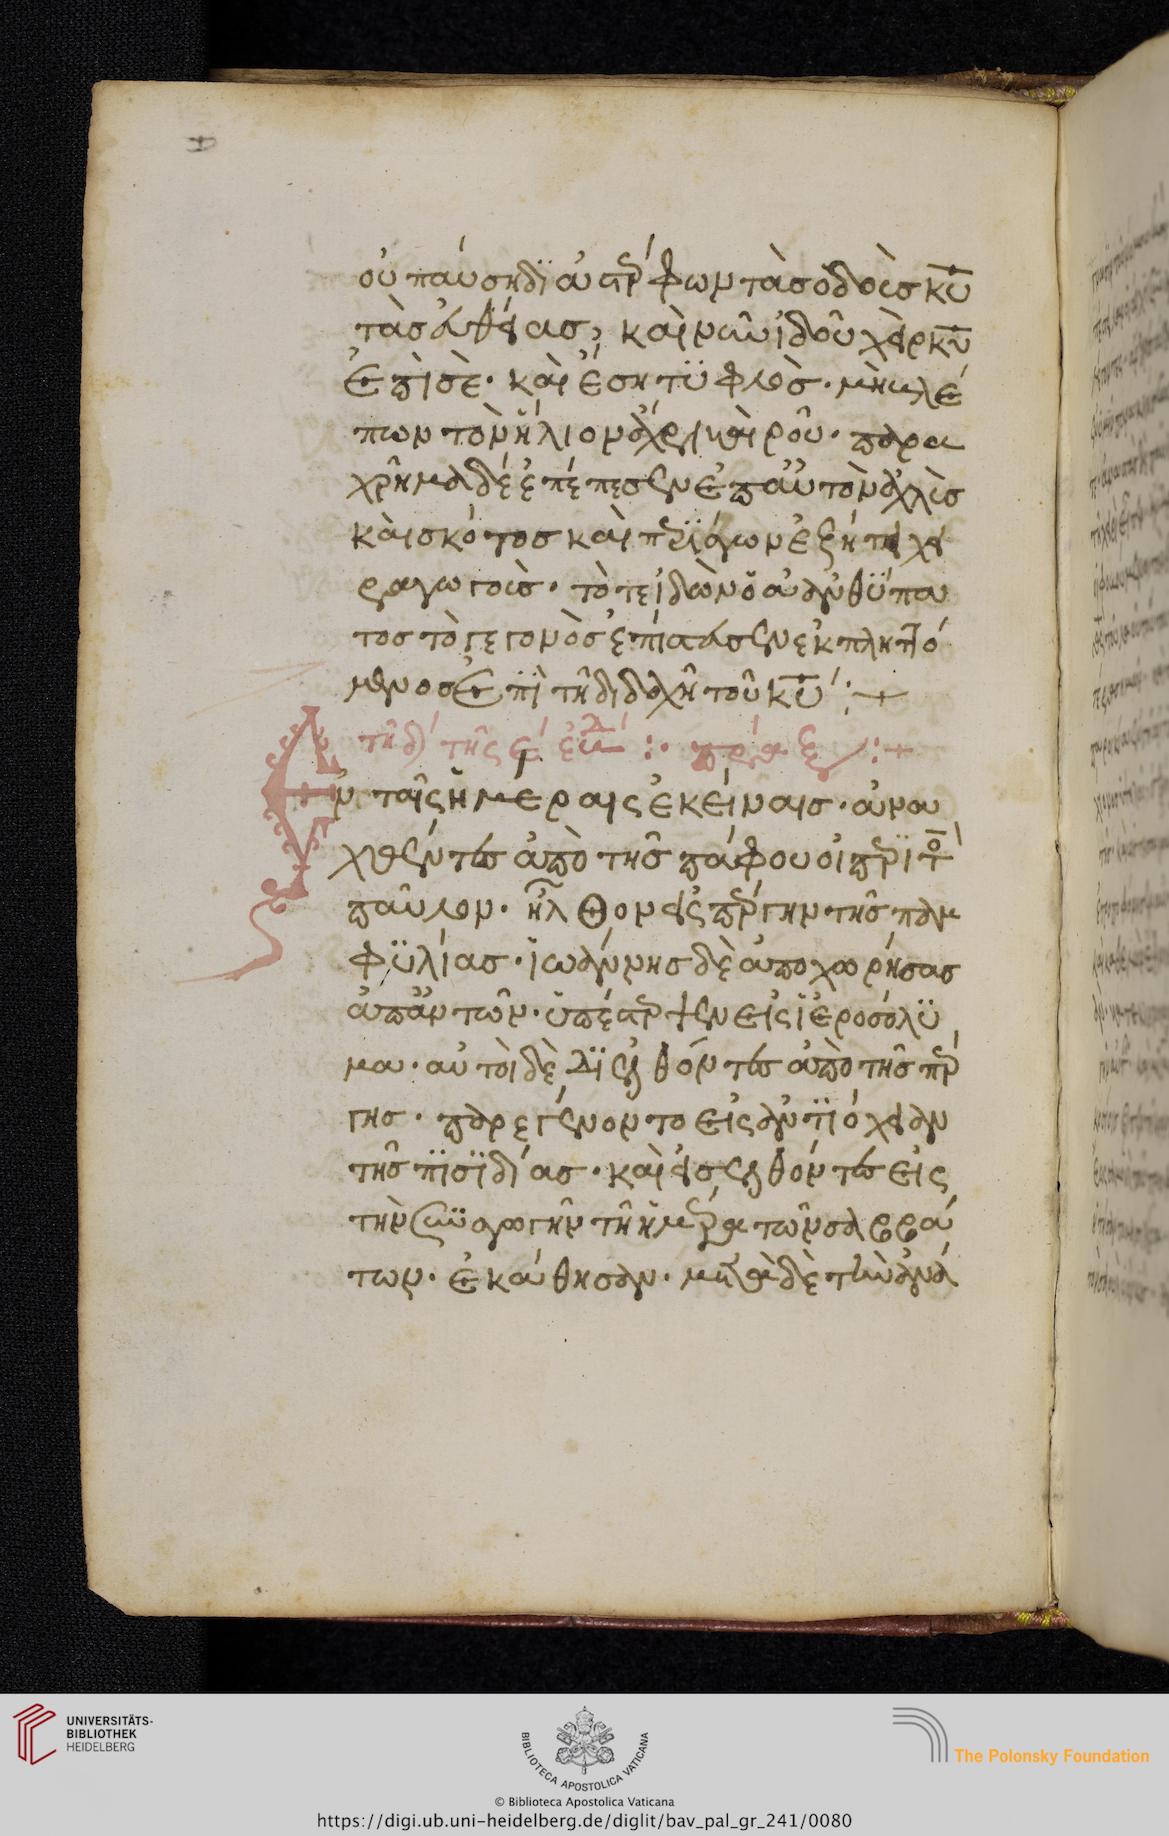 οὐ παύση διαστρέφων τὰς ὁδοὺς κ̅υ̅
τὰς εὐθείας, καὶ νῦν ἰδοὺ χεὶρ κ̅υ̅
ἐπὶ σὲ· καὶ ἔση τϋφλὸς· μὴ βλέ
πων τὸν ἥλιον ἄχρι καιροῦ· παρα
χρῆμα δὲ ἐπέπεσεν ἐπ αὐτὸν ἀχλὺς
καὶ σκότος καὶ περϊάγων ἐζήτει χει
ραγωγοὺς· τότε ἰδὼν ὁ ἀνθϋπα
τος τὸ γεγονὸς ἐπίστευσεν ἐκπληττό
μενος ἐπῒ τῆ διδαχῆ τοῦ κ̅υ̅ :+
τῆ δ τῆς ε ἑβδ :·
Ἐν ταῖς ἡμέραις ἐκείναις· ἀνα
χθέντες ἀπὸ τῆς πάφου οἱ περῒ τὸν
παῦλον· ἦλθον εἰς πέργην τῆς παμ
φϋλίας· ἰωάννης δὲ ἀποχωρήσας
ἀπ αὐτῶν· ὑπέστρεψεν εἰς ἱεροσόλϋ
μα· αὐτοὶ δὲ διελθόντες ἀπὸ τῆς πέρ
γης· παρεγένοντο εἰς ἀντϊόχειαν
τῆς πϊσϊδίας· καὶ εἰσελθόντες εἰς
τὴν συναγωγὴν τῆ ἡμέρα τῶν σαββά
των· ἐκάθησαν· μετὰ δὲ τὴν ἀνά
UNIVERSITÄTS-
BIBLIOTHEK
HEIDELBERG
BIBLIOTECA APOSTOLICA VATICANA
The Polonsky Foundation
© Biblioteca Apostolica Vaticana
https://digi.ub.uni-heidelberg.de/diglit/bav_pal_gr_241/0080